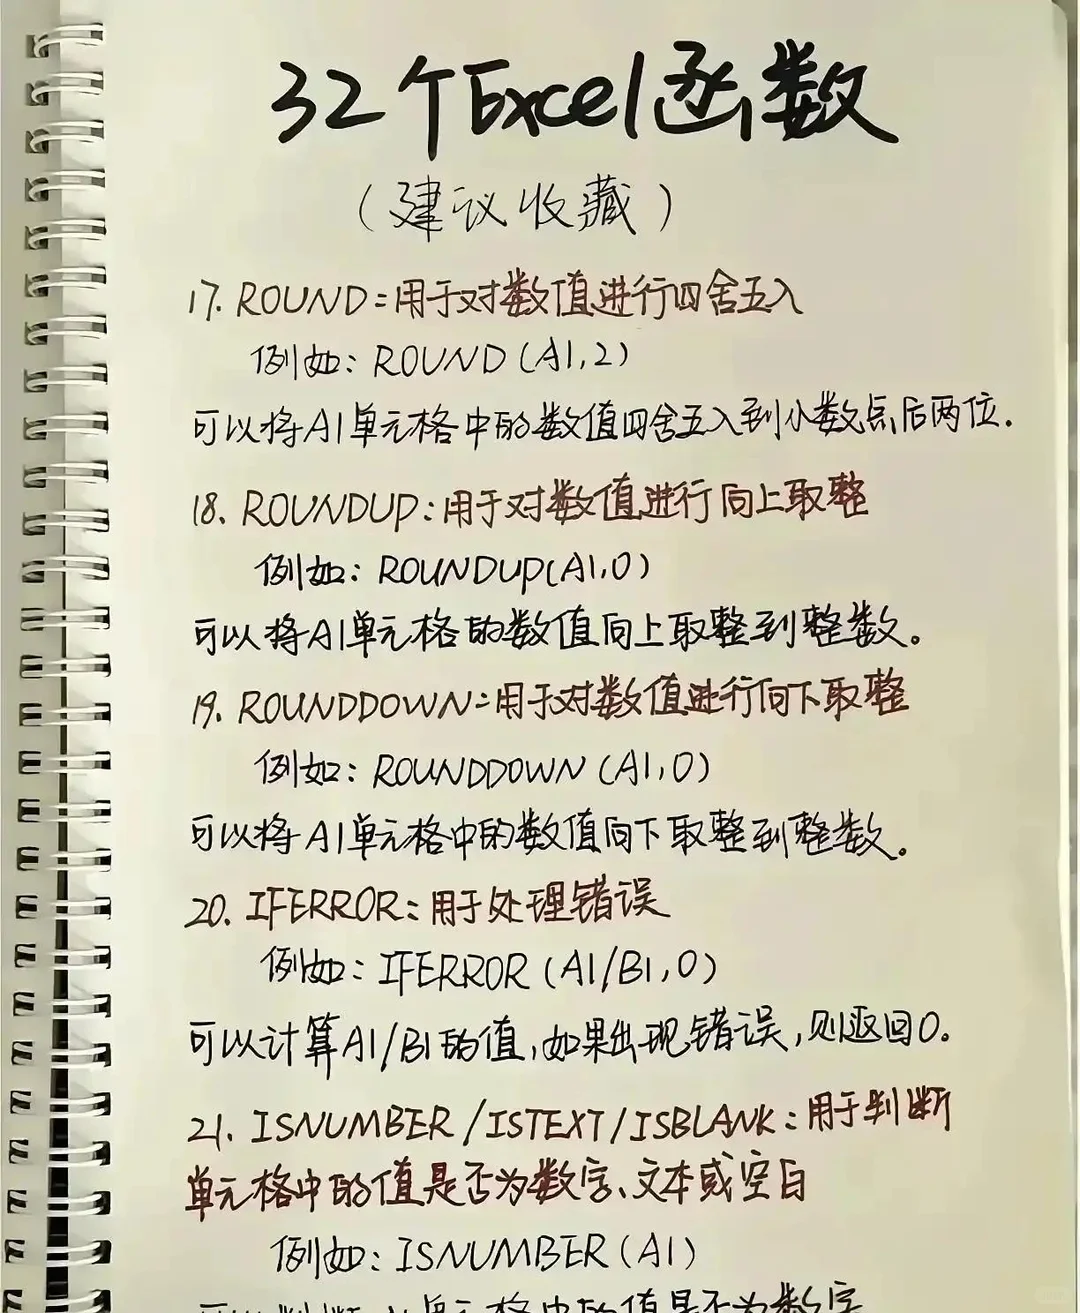 32个Excel函数
（建议收藏）
17. ROUND：用于对数值进行四舍五入
例如：ROUND（A1，2）
可以将A1单元格中的数值四舍五入到小数点后两位.
18. ROUNDUP：用于对数值进行向上取整
例如：ROUNDUP(A1，0）
可以将A1单元格的数值向上取整到整数。
19. ROUNDDOWN：用于对数值进行向下取整
例如：ROUNDDOWN（A1，0）
可以将A1单元格中的数值向下取整到整数。
20. IFERROR：用于处理错误
例如：IFERROR（A1/B1，0）
可以计算A1/B1的值，如果出现错误，则返回0。
21. ISNUMBER/ISTEXT/ISBLANK：用于判断
单元格中的值是否为数字、文本或空白
例如：ISNUMBER（A1）
可以判断A1单元格中的值是否为数字